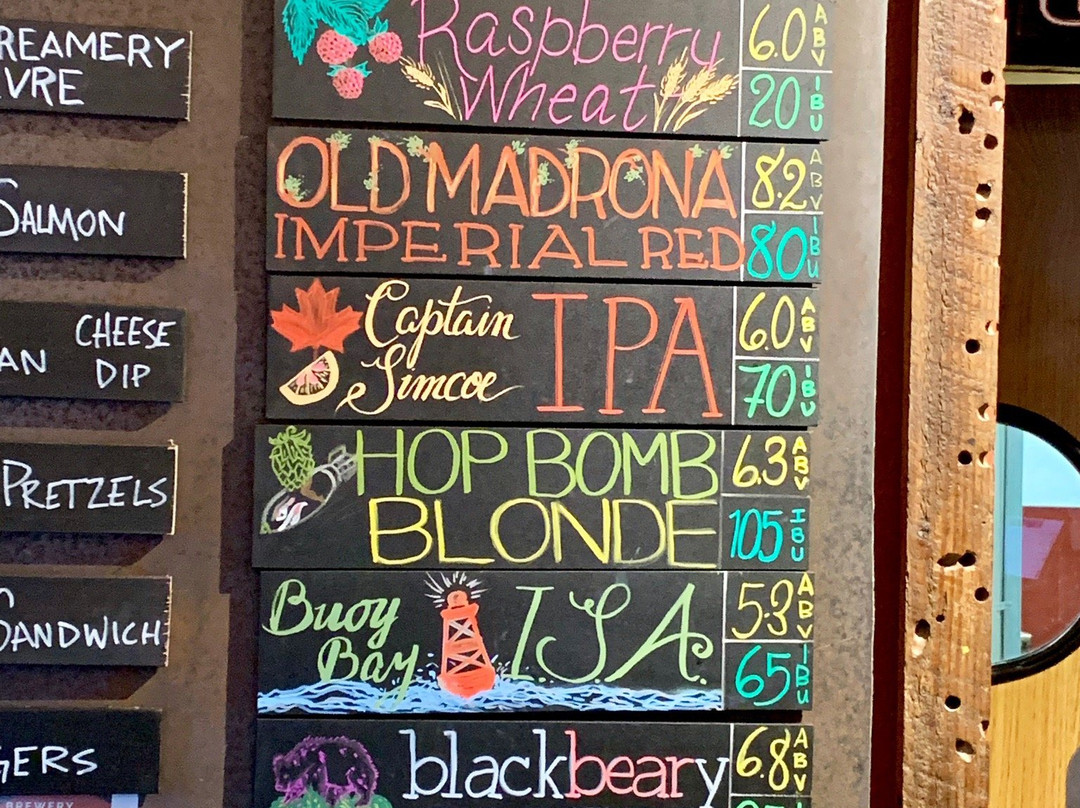 REAMERY
VRE
SALMON
CHEESE
AN DIP
PRETZELS
SANDWICH
GERS
BREWERY
Raspberry
Wheat
6.0 ABV
20 IBU
OLD MADRONA
IMPERIAL RED
8.2 ABV
80 IBU
Captain
Simcoe
IPA
6.0 ABV
70 IBU
HOP BOMB
BLONDE
6.3 ABV
105 IBU
Buoy
Bay
I.S.A.
5.3 ABV
65 IBU
blackbeary
6.8 ABV